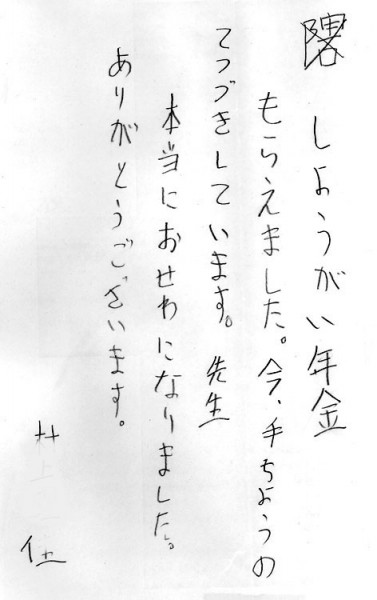 しようがい年金
もらえました。今、手ちようの
てつづきしています。先生
本当におせわになりました。
ありがとうございます。